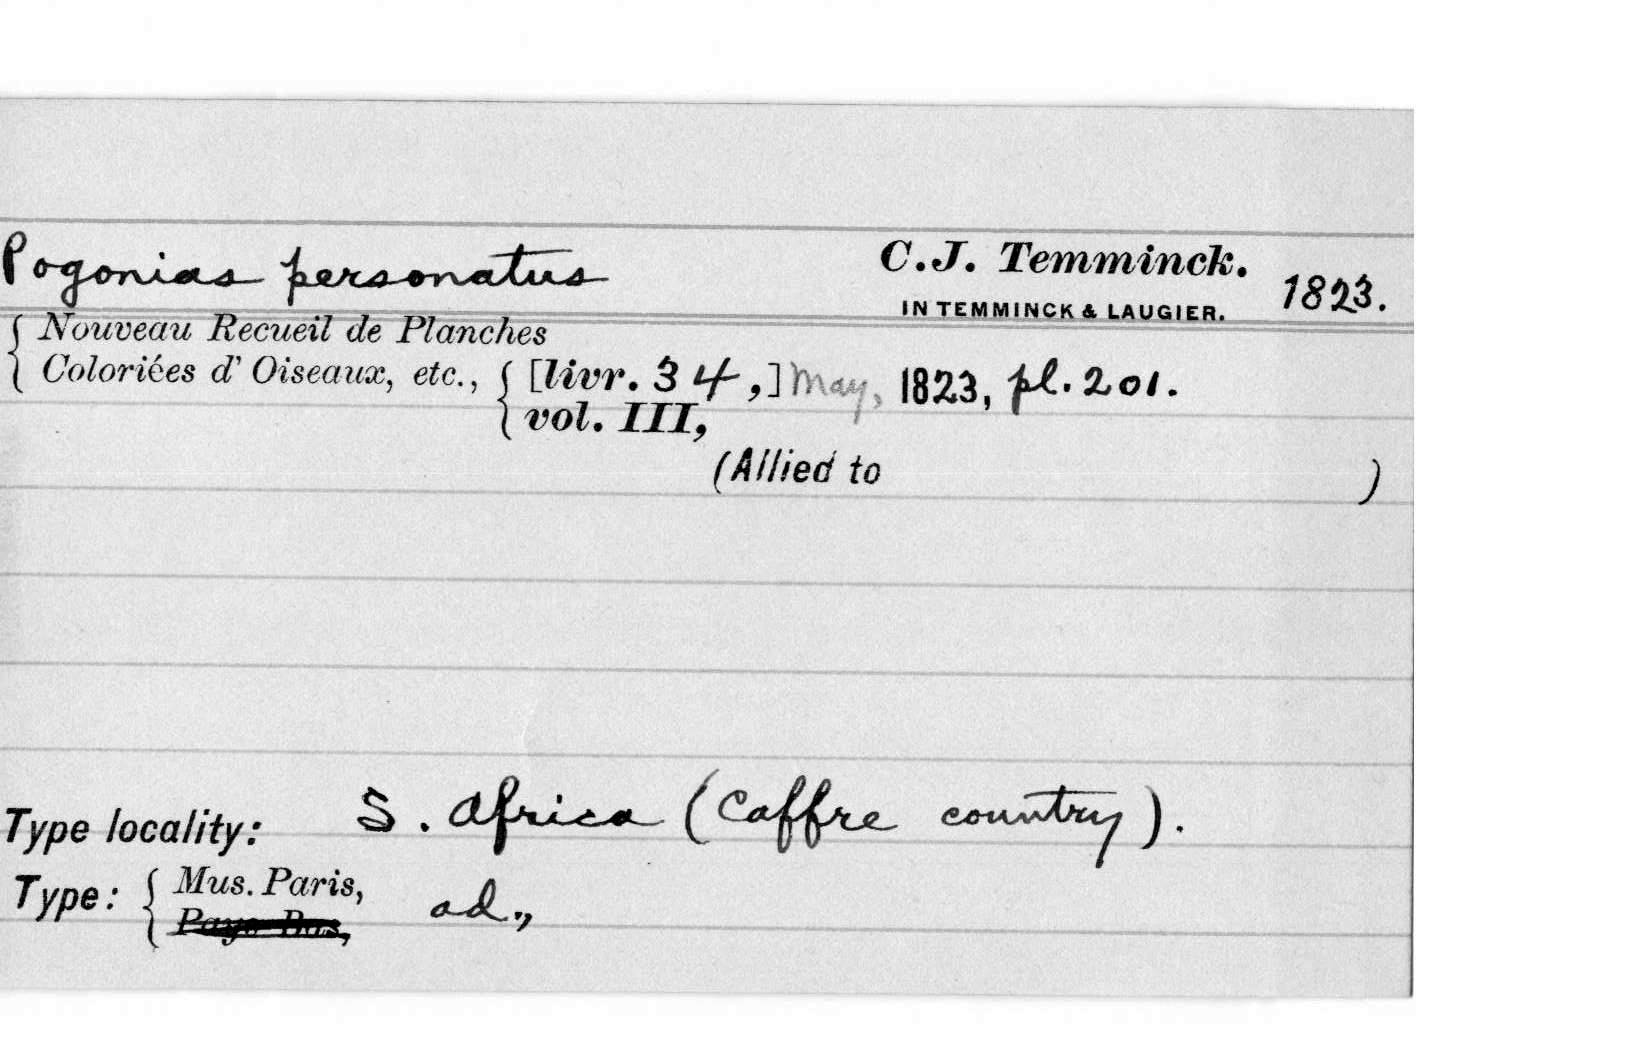 Pogonias personatus C.J. Temminck. 1823.
IN TEMMINCK & LAUGIER.
{ Nouveau Recueil de Planches
Coloriées d' Oiseaux, etc., { [livr. 34,] May, 1823, pl. 201.
vol. III,
(Allied to )
Type locality: S. Africa (Caffre country).
Type: { Mus. Paris, ad.,
Pays Bas,